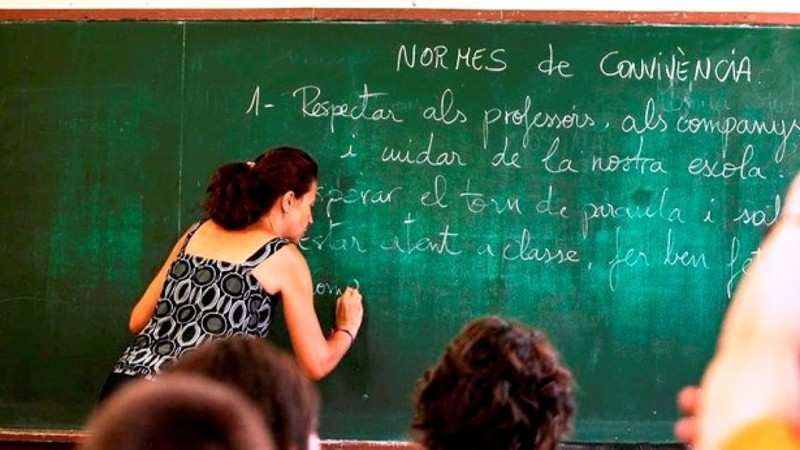 NORMES de CONVIVÈNCIA.
1- Respectar als professors, als companys
i cuidar de la nostra escola.
el torn de paraula i
atent a classe, fer ben